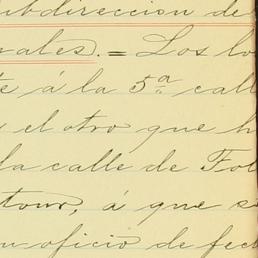 ubdireccion de
nales. = Los lo
te á la 5ª call
s el otro que h
la calle de Fol
tour, á que s
n oficio de fech